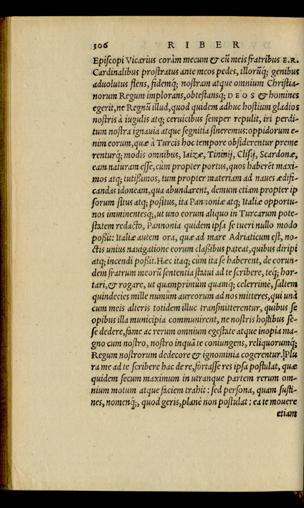 306 RIBER
Episcopi Vicarius coràm mecum & cũ meis fratribus E.R.
Cardinalibus prostratus ante meos pedes, illorũq; genibus
aduolutus flens, fidemq; nostram atque omnium Christia-
norum Regum implorans, obtestansq; DEOS & homines
egerit, ne Regnũ illud, quod quidem adhuc hostium gladios
nostris à iugulis atq; ceruicibus semper repulit, iri perdi-
tum nostra ignauia atque segnitia sineremus: oppidorum e-
nim eorum, quæ à Turcis hoc tempore obsiderentur preme
renturq; modis omnibus, Iaizæ, Tininij, Clisij, Scardonæ,
eam naturam esse, cùm propter portus, quos haberẽt maxi-
mos atq; tutißimos, tum propter materiam ad naues ædifi-
candas idoneam, qua abundarent, demum etiam propter ip
sorum situs atq; positus, ita Pannoniæ atq; Italiæ opportu-
nos imminentesq;, ut uno eorum aliquo in Turcarum pote-
statem redacto, Pannonia quidem ipsa se tueri nullo modo
poßit: Italiæ autem ora, quæ ad mare Adriaticum est, no-
ctis unius nauigatione eorum claßibus pateat, quibus diripi
atq; incendi poßit. Hæc itaq; cùm ita se haberent, de eorun-
dem fratrum meorũ sententia statui ad te scribere, teq; hor-
tari, & rogare, ut quamprimùm quamq; celerrimè, saltem
quindecies mille nummûm aureorum ad nos mitteres, qui unà
cum meis alteris totidem illuc transmitterentur, quibus se
opibus illa municipia communirent, ne nostris hostibus se-
se dedere, fame ac rerum omnium egestate atque inopia ma-
gno cum nostro, nostro inquã te coniungens, reliquorumq;
Regum nostrorum dedecore & ignominia cogerentur. Plu
ra me ad te scribere hac de re, fortasse res ipsa postulat, quæ
quidem secum maximum in utranque partem rerum om-
nium motum atque faciem trahit: sed persona, quam susti-
nes, nomenq;, quod geris, planè non postulat: ea te mouere
etiam